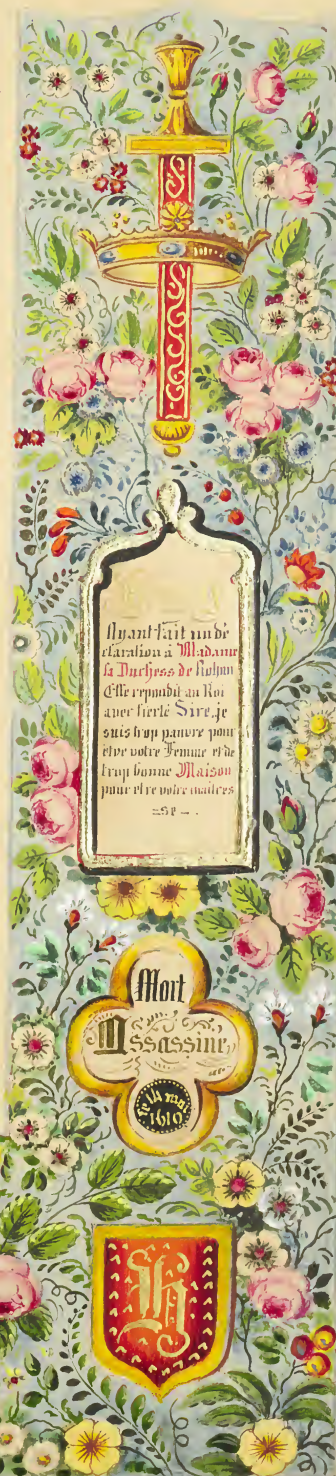 Ayant fait un dé
claration à Madame
la Duchess de Rohan
Elle repondit au Roi
avec fierté Sire, je
suis trop pauvre pour
etre votre Femme et de
trop bonne Maison
pour etre votre maitres
=se -.
Mort
Assassiné,
le 14 mai
1610
H